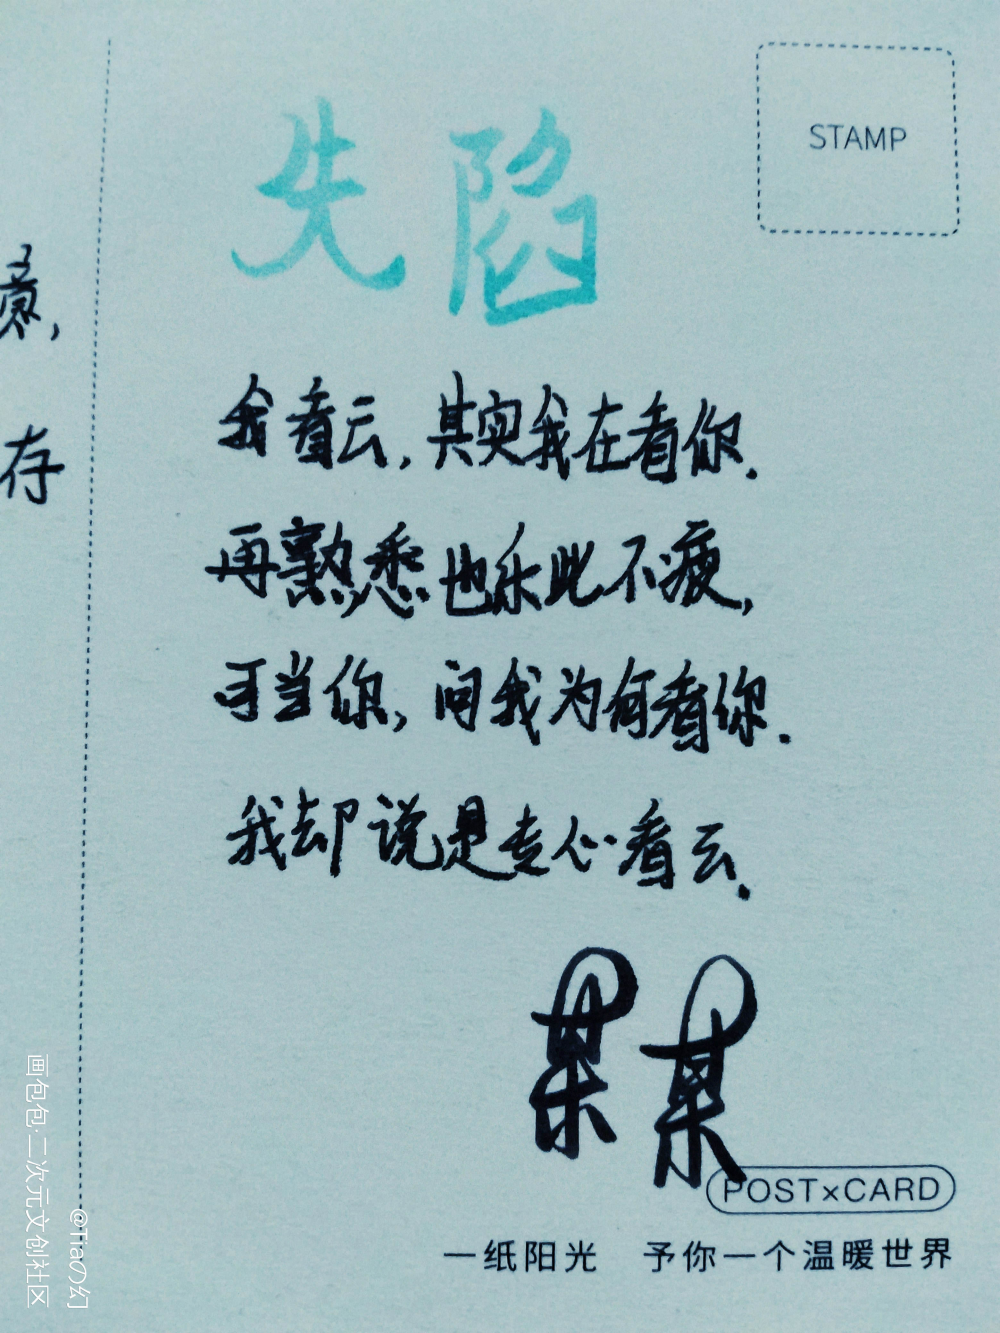 失陷
STAMP
意，
存
我看云，其实我在看你.
再熟悉也乐此不疲，
可当你，问我为何看你.
我却说是专心看云.
某某
POST×CARD
一纸阳光 予你一个温暖世界
画包包·二次元文创社区
@Tiaの幻